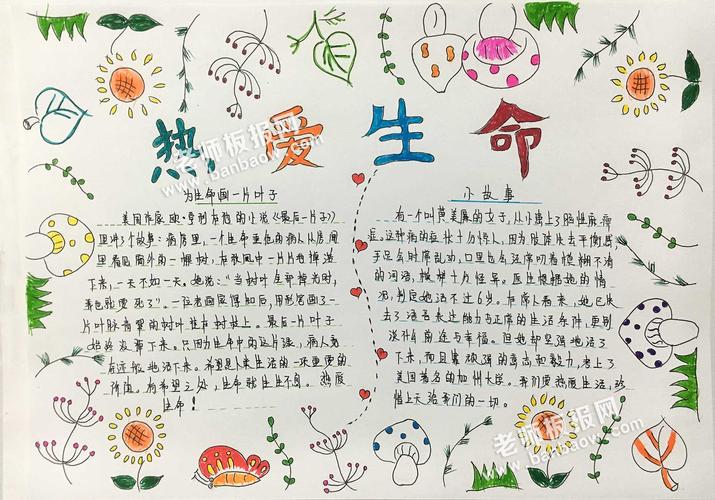 热爱生命
老师板报网
www.banbaow.com
为生命画一片叶子
美国作家欧·亨利在他的小说《最后一片叶子》
里讲了个故事：病房里，一个生命垂危的病人从房间
里看见窗外的一棵树，在秋风中一片片地掉落
下来，一天不如一天。她说："当树叶全部掉光时，
我也就要死了"。一位老画家得知后，用彩笔画了一
片叶脉青翠的树叶挂在树枝上。最后一片叶子
始终没掉下来。只因为生命中的这片绿，病人竟
奇迹般地活下来。希望是人类生活的一项重要的
价值。有希望之处，生命就生生不息。热爱
生命！
小故事
有一个叫黄美廉的女子，从小患上了脑性麻痹
症。这种病的症状十分惊人，因为肢体失去平衡感，
手足会时常乱动，口里也会经常叨着模糊不清
的词语，模样十分怪异。医生根据她的情
况，判定她活不过6岁。在常人看来，她已失
去了语言表达能力与正常的生活条件，更别
谈什么前途与幸福。但她却坚强地活了
下来，而且靠顽强的意志和毅力，考上了
美国著名的加州大学。我们要热爱生活，珍
惜上天给我们的一切。
老师板报网
www.banbaow.com